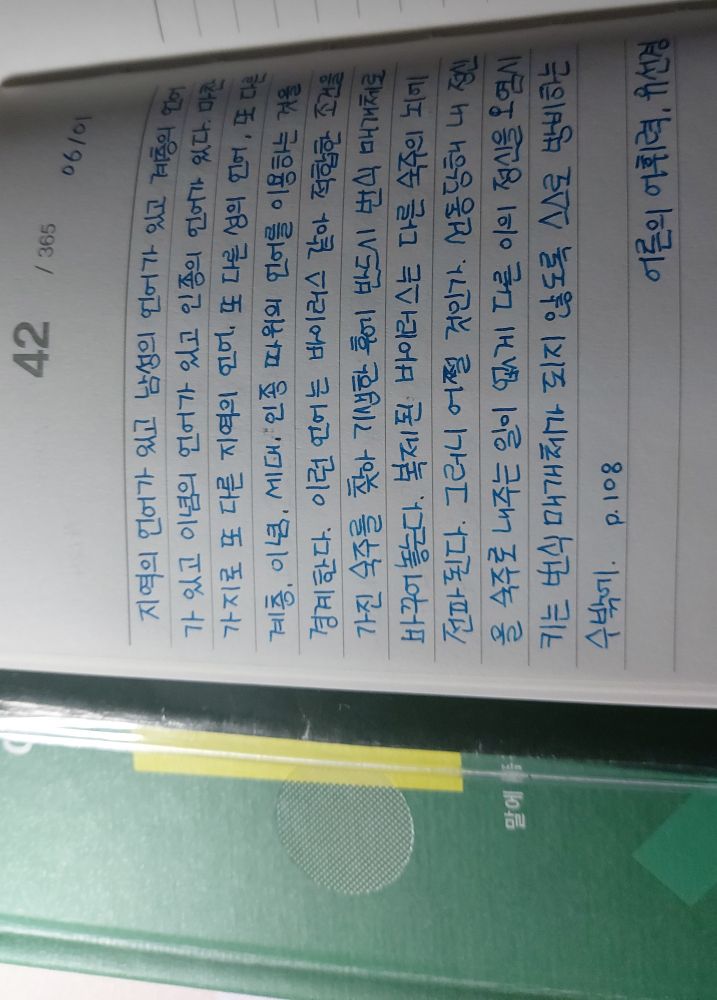 42 / 365
06/01
지역의 언어가 있고 남성의 언어가 있고 계층의 언어
가 있고 이념의 언어가 있고 인종의 언어가 있다. 마찬
가지로 또 다른 지역의 언어, 또 다른 성의 언어, 또 다른
계층, 이념, 세대, 인종 따위의 언어를 이용하는 것을
경계한다. 이런 언어는 바이러스 같아 적합한 조건을
가진 숙주를 찾아 기생한 후에 반드시 번식 매개체로
바꾸어놓는다. 복제된 바이러스는 다른 숙주의 뇌에
전파된다. 그러니 어쩔 것인가. 선동당해 내 정신
을 숙주로 내주는 일이 없게 다른 이의 정신을 오염시
키는 번식 매개체가 되지 않도록 스스로 방비하는
수밖에. p.108
어른의 어휘력, 유선경
말에